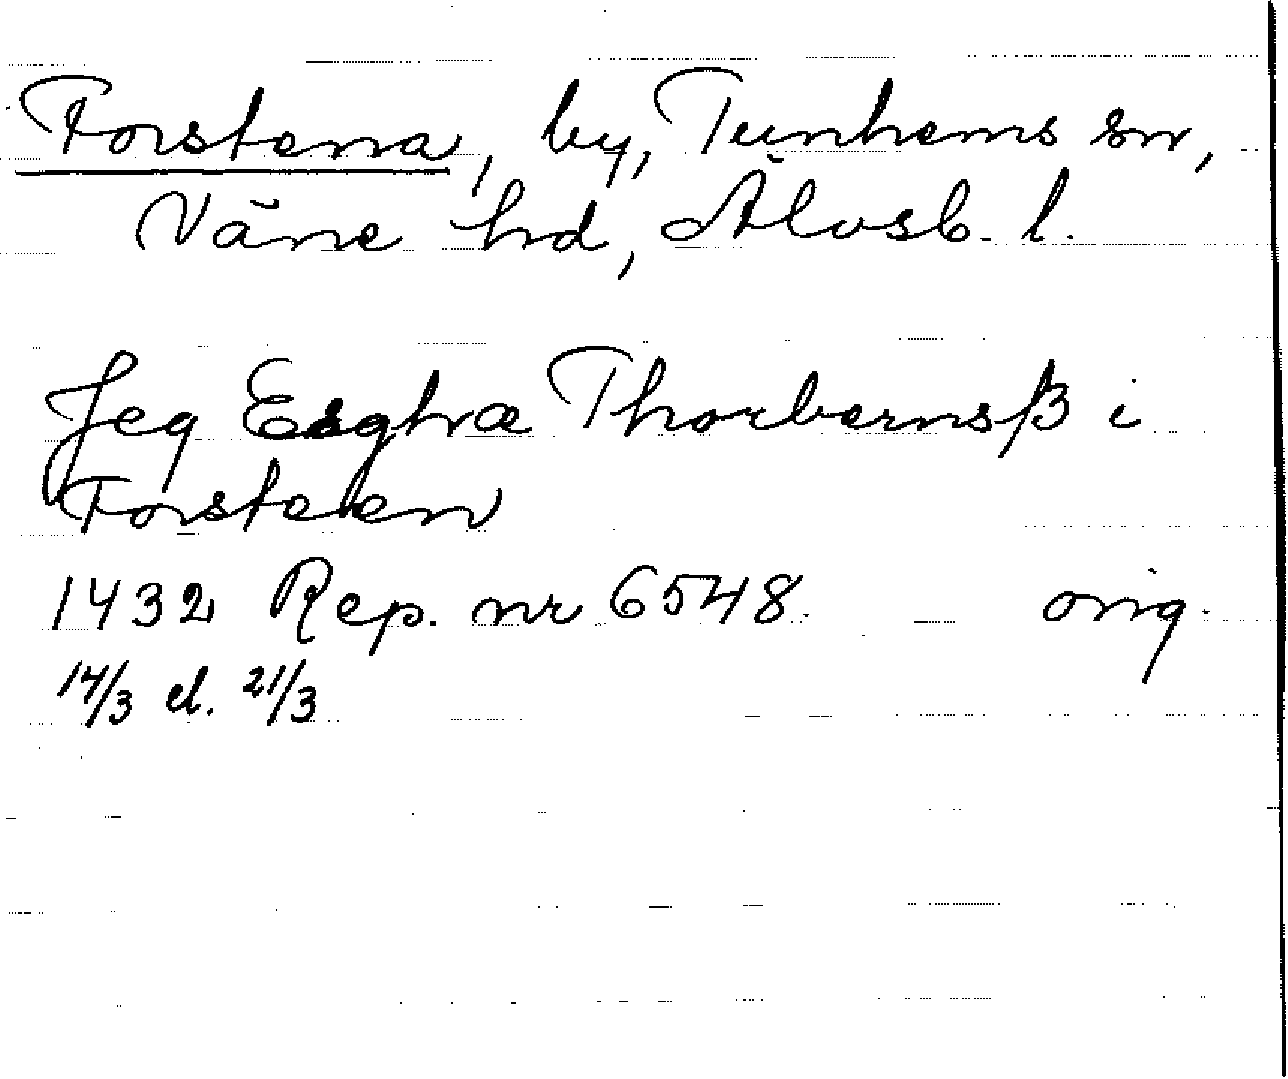 Forstena, by, Tunhems sn,
Väne hd, Älvsb. l.
Jeg Esghræ Thorbernsß i
Forsteen
1432 Rep. nr 6548. orig.
14/3 el. 21/3